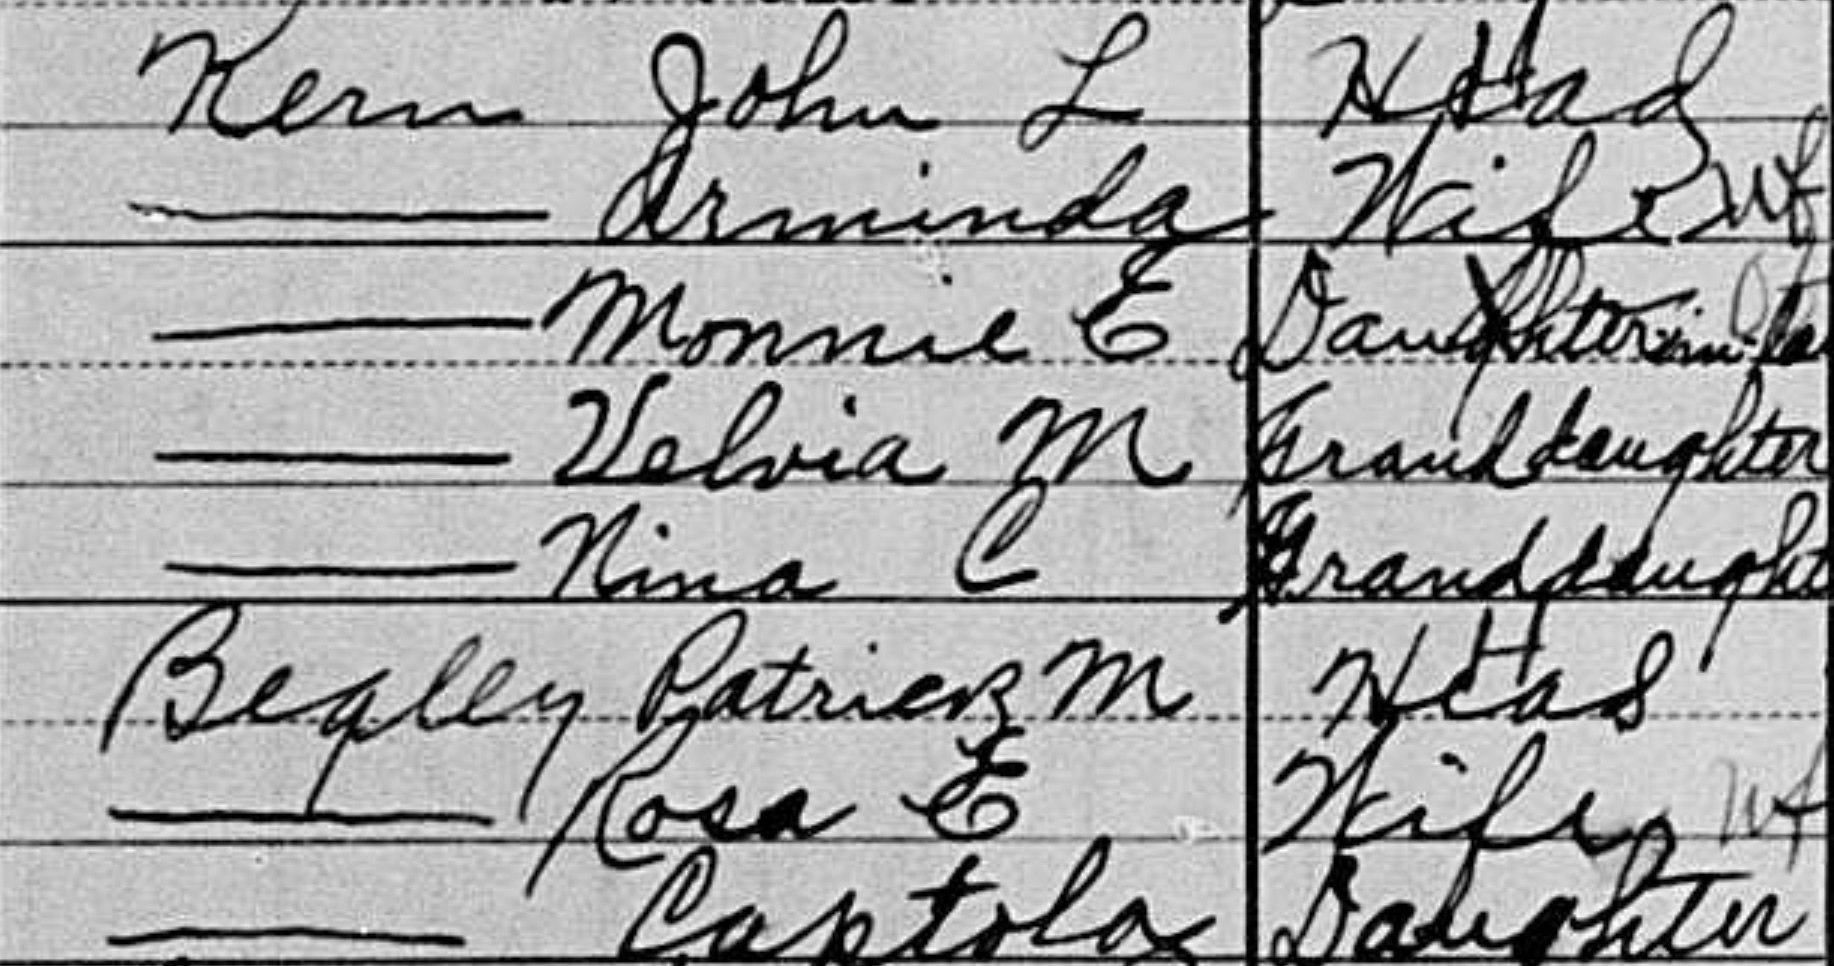 Kern John L Head
—— Arminda Wife wf
—— Monnie E Daughter-in-la
—— Velvia M Granddaughter
—— Nina C Granddaught
Begley Patrick M Head
—— Rosa E Wife wf
—— Captola Daughter